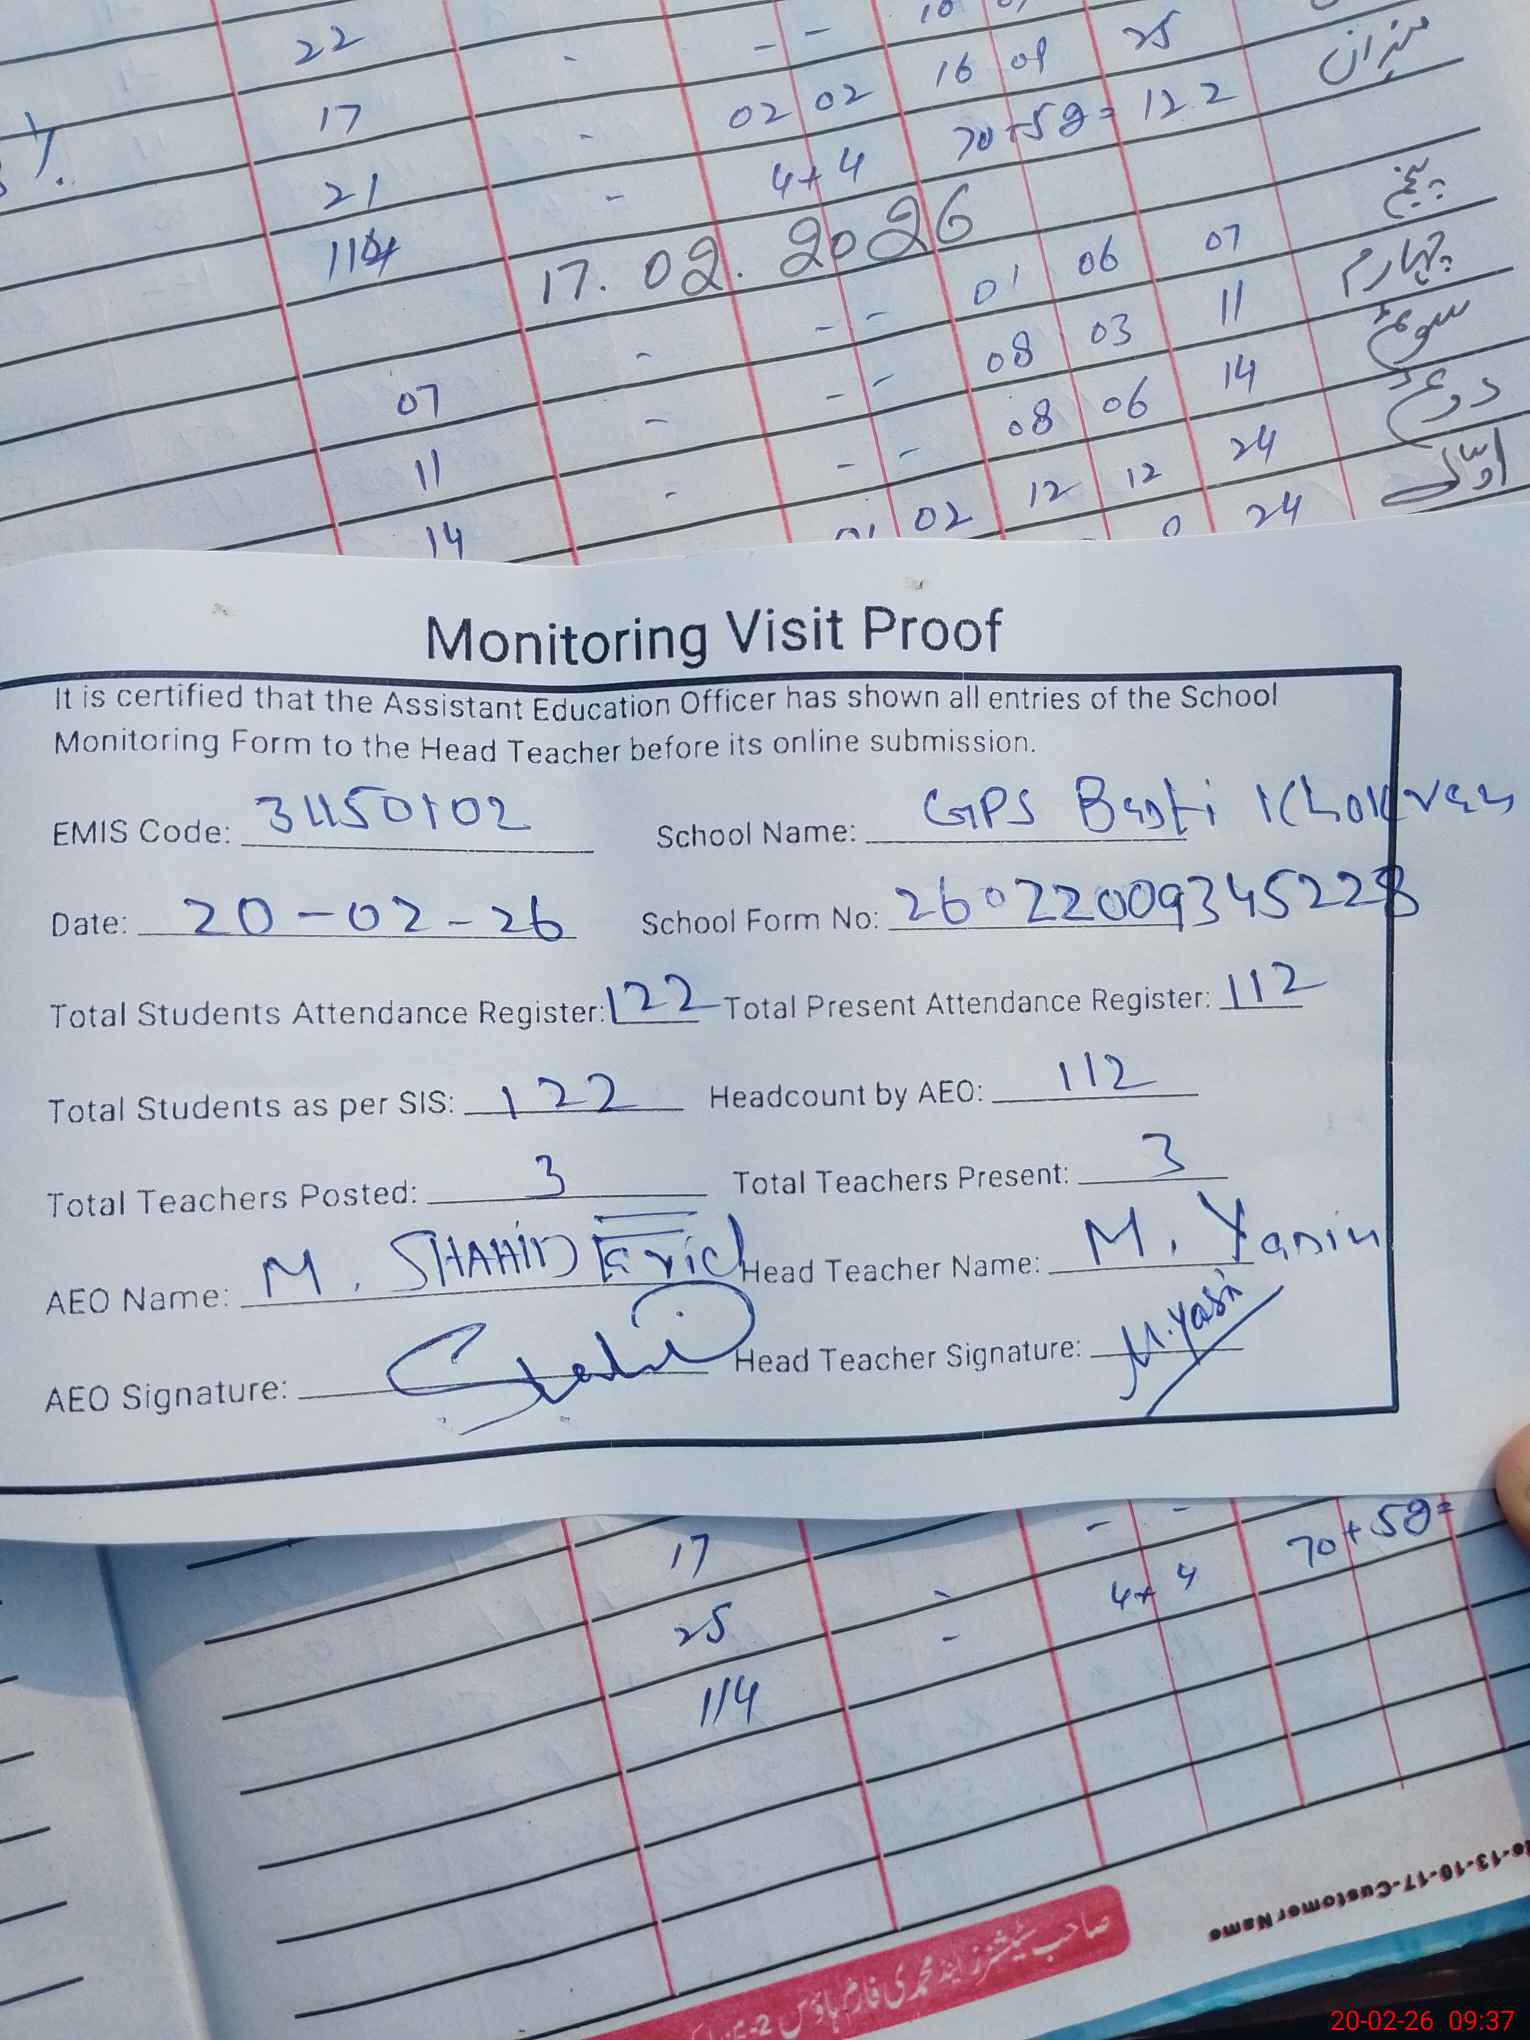 10
22 - - - 16 09 25
17 - 02 02 70+52= 122 میزان
21 - 4+4
114
17.02.2026
پنجم
07 - - - 01 06 07 چہارم
11 - - - 08 03 11 سوئم
14 - - - 08 06 14 دوئم
12 12 24 اول
01 02 0 24
Monitoring Visit Proof
It is certified that the Assistant Education Officer has shown all entries of the School
Monitoring Form to the Head Teacher before its online submission.
EMIS Code: 31150102 School Name: GPS Basti Khokran
Date: 20-02-26 School Form No: 26022009345228
Total Students Attendance Register: 122 Total Present Attendance Register: 112
Total Students as per SIS: 122 Headcount by AEO: 112
Total Teachers Posted: 3 Total Teachers Present: 3
AEO Name: M. SHAHID Farid Head Teacher Name: M. Yasin
AEO Signature: Head Teacher Signature: M.Yasin
17 - -
25 - 4+4 70+52=
114 -
13-10-17-Customer Name
صاحب سٹیشنرز اینڈ محمدی فارم ہاؤس
20-02-26 09:37